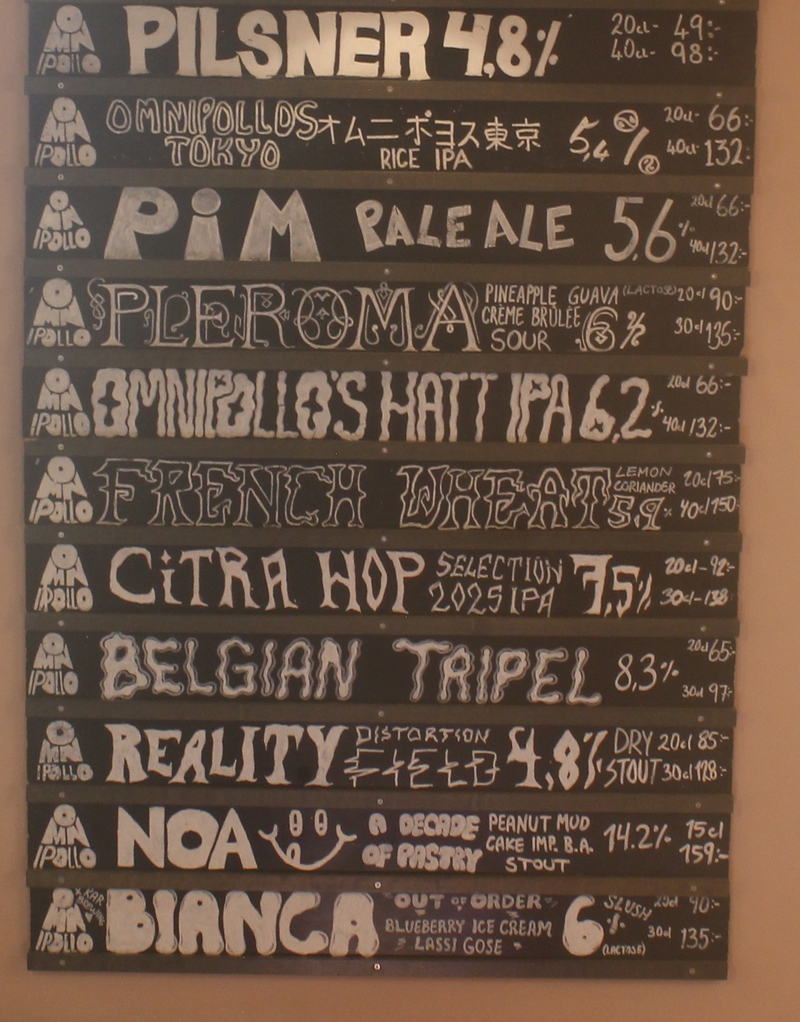 OMNIPOLLO PILSNER 4,8% 20cl- 49:-
40cl- 98:-
OMNIPOLLO OMNIPOLLOS TOKYO オムニポヨス東京 RICE IPA 5,4% 20cl- 66:-
40cl- 132:-
OMNIPOLLO PiM PALE ALE 5,6% 20cl 66:-
40cl 132:-
OMNIPOLLO PLEROMA PINEAPPLE GUAVA (LACTOSE) 20cl 90:-
CRÈME BRÛLÉE 6%
SOUR 30cl 135:-
OMNIPOLLO OMNIPOLLO'S HATT IPA 6,2% 20cl 66:-
40cl 132:-
OMNIPOLLO FRENCH WHEAT LEMON 20cl 75:-
CORIANDER
5,9% 40cl 150:-
OMNIPOLLO CiTRA HOP SELECTION 7,5% 20cl- 92:-
2025 IPA 30cl- 138:-
OMNIPOLLO BELGIAN TRIPEL 8,3% 20cl 65:-
30cl 97:-
OMNIPOLLO REALITY DISTORTION 4,8% DRY 20cl 85:-
FIELD STOUT 30cl 128:-
OMNIPOLLO NOA A DECADE PEANUT MUD 14.2% 15cl
OF PASTRY CAKE IMP. B.A. 159:-
STOUT
OMNIPOLLO BIANCA OUT OF ORDER 6% SLUSH 20cl 90:-
BLUEBERRY ICE CREAM 30cl 135:-
LASSI GOSE (LACTOSE)